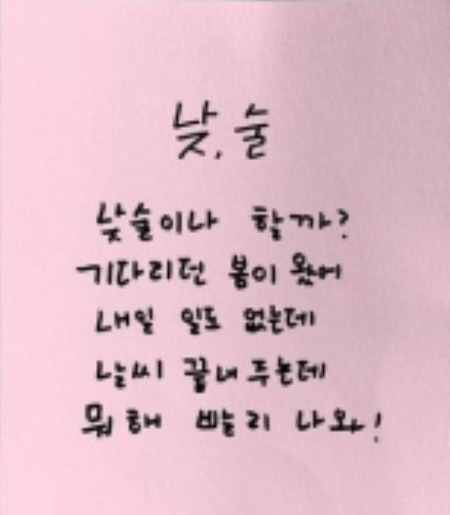 낮, 술
낮술이나 할까?
기다리던 봄이 왔어
내일 일도 없는데
날씨 끝내주는데
뭐해 빨리 나와!